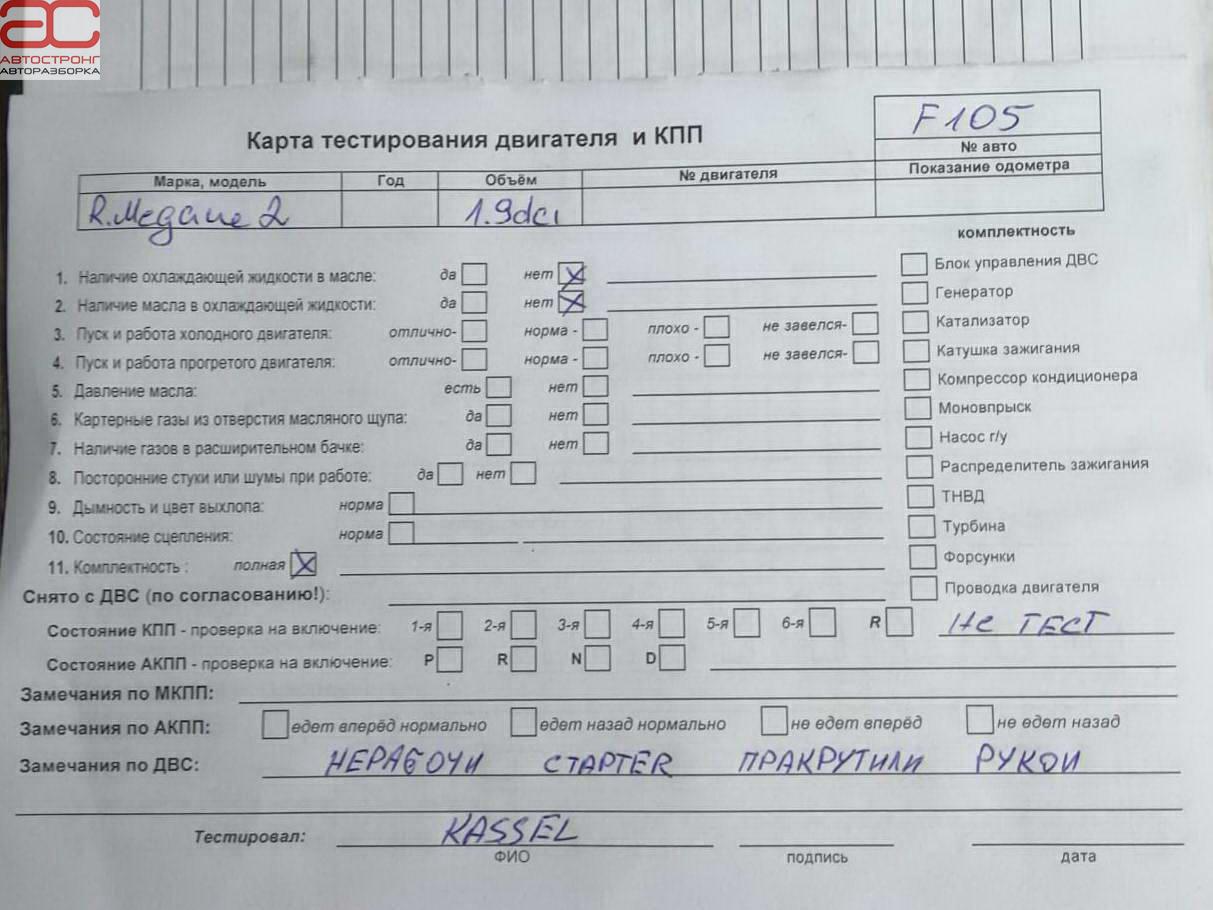 ас
АВТОСТРОНГ
АВТОРАЗБОРКА
F105
Карта тестирования двигателя и КПП
№ авто
Марка, модель Год Объём № двигателя Показание одометра
R.Megane 2 1.9dci
комплектность
1. Наличие охлаждающей жидкости в масле: да нет X Блок управления ДВС
2. Наличие масла в охлаждающей жидкости: да нет X Генератор
3. Пуск и работа холодного двигателя: отлично- норма - плохо - не завелся- Катализатор
4. Пуск и работа прогретого двигателя: отлично- норма - плохо - не завелся- Катушка зажигания
5. Давление масла: есть нет Компрессор кондиционера
6. Картерные газы из отверстия масляного щупа: да нет Моновпрыск
7. Наличие газов в расширительном бачке: да нет Насос г/у
8. Посторонние стуки или шумы при работе: да нет Распределитель зажигания
9. Дымность и цвет выхлопа: норма ТНВД
10. Состояние сцепления: норма Турбина
11. Комплектность : полная X Форсунки
Снято с ДВС (по согласованию!): Проводка двигателя
Состояние КПП - проверка на включение: 1-я 2-я 3-я 4-я 5-я 6-я R Не ТЕСТ
Состояние АКПП - проверка на включение: P R N D
Замечания по МКПП:
Замечания по АКПП: едет вперёд нормально едет назад нормально не едет вперёд не едет назад
Замечания по ДВС: НЕРАБОЧИ СТАРТЕR ПРАКРУТИЛИ РУКОИ
Тестировал: KASSEL
ФИО подпись дата